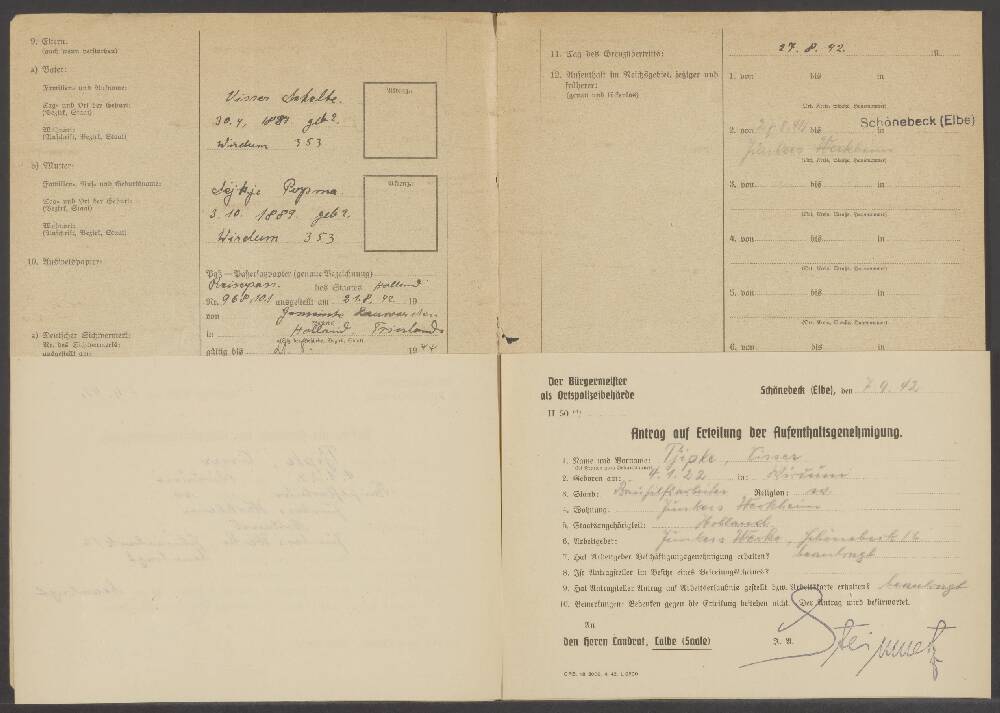 9. Eltern:
(auch wenn verstorben)
a) Vater:
Familien- und Rufname:
Visser Sakelte.
Tag- und Ort der Geburt:
(Bezirk, Staat)
30.4. 1889 geb?.
Wohnort:
(Anschrift, Bezirk, Staat)
Wirdum 353
Aktenz.:
b) Mutter:
Familien-, Ruf- und Geburtsname:
Popma
Tag- und Ort der Geburt:
(Bezirk, Staat)
3.10. 1889. geb?.
Wohnort:
(Anschrift, Bezirk, Staat)
Wirdum 353
Aktenz.:
10. Ausweispapier:
Paß — Paßersatzpapier (genaue Bezeichnung)
Reisepass. des Staates Holland
Nr. 968,101 ausgestellt am 21.8. 42 19
von Gemeinte
in Holland Friesland
gültig bis 1944
a) Deutscher Sichtvermerk:
Nr. des Sichtvermerks:
ausgestellt am:
11. Tag des Grenzübertritts:
27. 8. 42. 19
12. Aufenthalt im Reichsgebiet, jetziger und
früherer:
(genau und lückenlos)
1. von bis in
(Ort, Kreis, Straße, Hausnummer)
2. von 27.8.42 bis in
Schönebeck (Elbe)
Junkers Werkheim
(Ort, Kreis, Straße, Hausnummer)
3. von bis in
(Ort, Kreis, Straße, Hausnummer)
4. von bis in
(Ort, Kreis, Straße, Hausnummer)
5. von bis in
(Ort, Kreis, Straße, Hausnummer)
6. von bis in
Der Bürgermeister
als Ortspolizeibehörde
II 50
Schönebeck (Elbe), den 7.9.42
Antrag auf Erteilung der Aufenthaltsgenehmigung.
1. Name und Vorname: Tjipke, Visser
(bei Frauen auch Geburtsname)
2. Geboren am: 4.1.22 in: Wirdum
3. Stand: Bauhilfsarbeiter Religion: ev.
4. Wohnung: Junkers Werkheim
5. Staatsangehörigkeit: Holland
6. Arbeitgeber: Junkers Werke, Schönebeck
7. Hat Arbeitgeber Beschäftigungsgenehmigung erhalten? beantragt
8. Ist Antragsteller im Besitze eines Befreiungsscheines?
9. Hat Antragsteller Antrag auf Arbeitserlaubnis gestellt bzw. Arbeitskarte erhalten? beantragt
10. Bemerkungen: Bedenken gegen die Erteilung bestehen nicht. Der Antrag wird befürwortet.
An
den Herrn Landrat, Calbe (Saale)
J. A.
Steinmetz